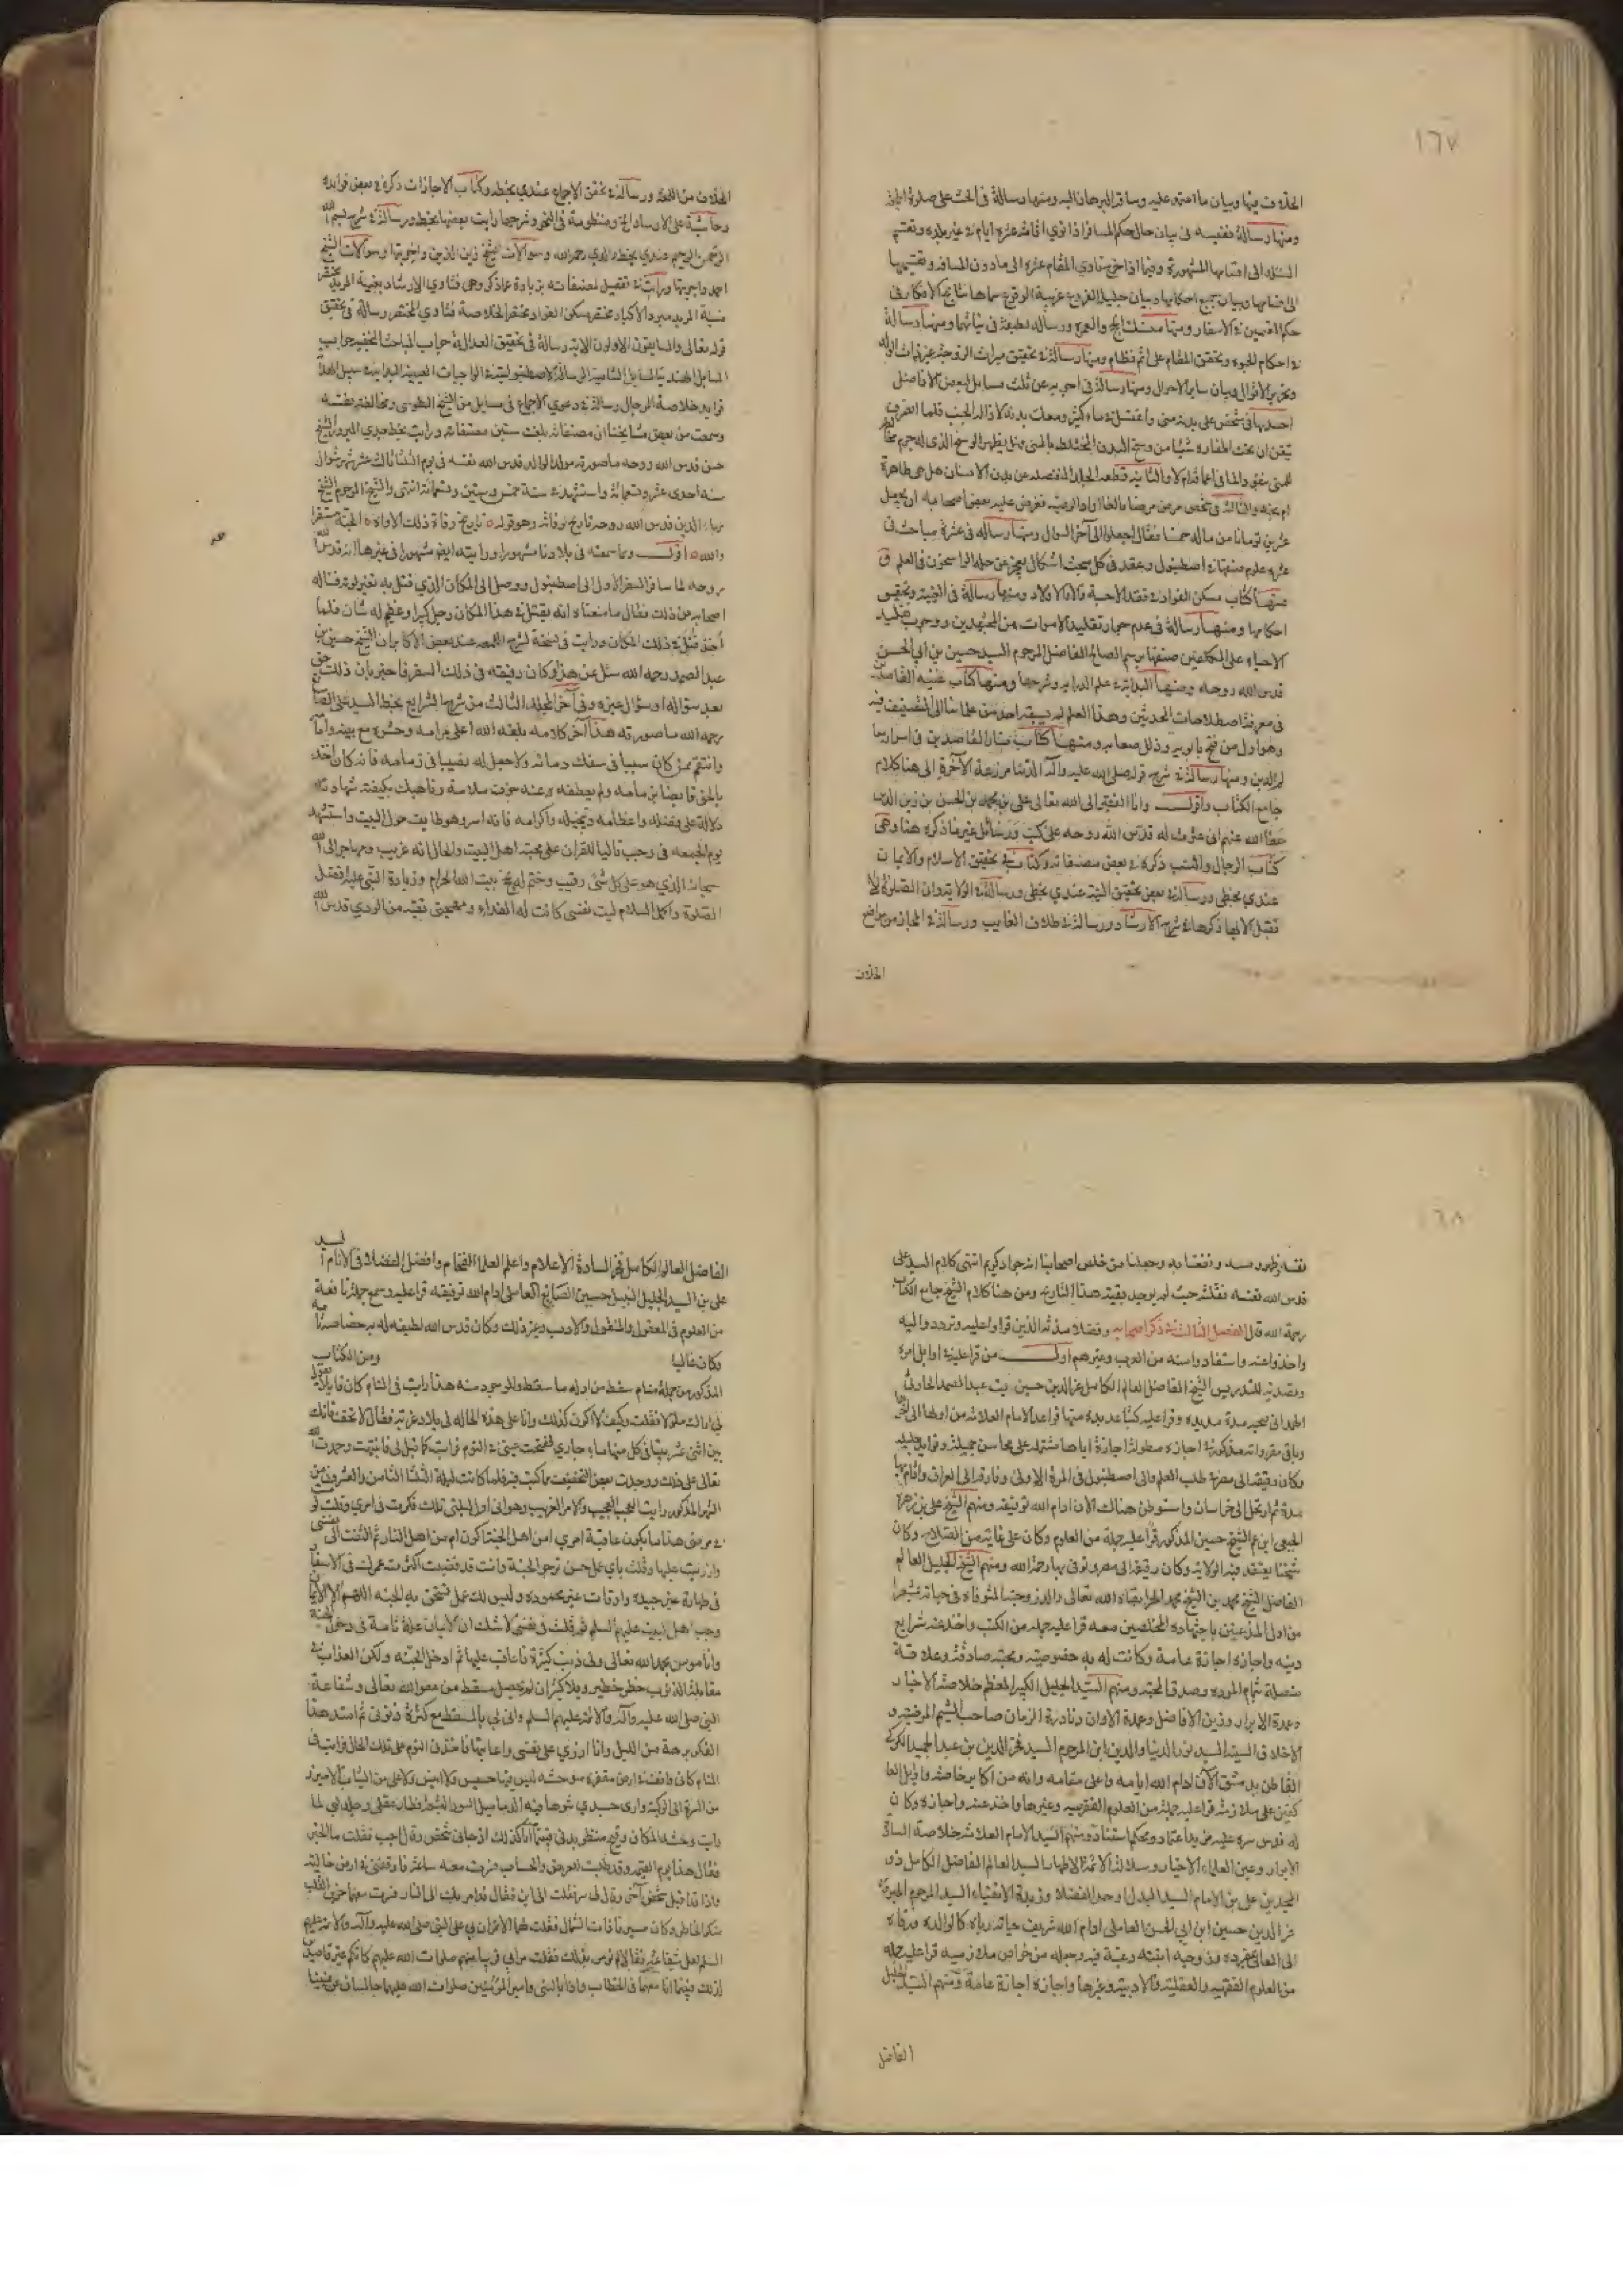 ١٦٧
الخلاف فيها وبيان ما اعتمد عليه وساق البرهان اليه ومنها رسالة في الحث على صلوة الجمعة
ومنها رسالة نفيسة في بيان حال حكم المسافر اذا نوى اقامة عشرة ايام في غير بلده وتقسيم
المسئلة الى اقسامها المشهورة وفيما اذا خرج ناوي المقام عشرة الى ما دون المسافة وتقسيمها
الى اقسامها وبيان جميع احكامها وبيان جليلة الفروع غريبة الوقوع سماها نتايج الافكار في
حكم المقيمين في الاسفار ومنها منسك الحج والعمرة ورسالة لطيفة في نياتهما ومنها رسالة
في احكام الحبوة وتحقيق المقام على اتم نظام ومنها رسالة في تحقيق ميراث الزوجة غير ذات الولد
وتحرير الاقوال وبيان ساير الاحوال ومنها رسالة في اجوبة عن ثلث مسايل لبعض الافاضل
احديها في شخص على بدنه مني واغتسل في ماء كثير ومعك بدنه لازالة الخبث فلما انصرف
تيقن ان تحت اظفاره شيئا من وسخ البدن المختلط بالمني
والثانية في قطعة الجلد المنفصلة عن بدن الانسان هل هي طاهرة
ام نجسة والثالثة في شخص مرض مرضا بالغا اراد الوصية فعرض عليه بعض اصحابه ان يجعل
عشرين تومانا من ماله خمسا فقال اجعلوا الى آخر السوال ومنها رسالة في عشرة مباحث في
عشرة علوم صنفها في اصطنبول وعقد في كل مبحث اشكال يعجز عن حله الراسخون في العلم
ومنها كتاب مسكن الفؤاد في فقد الاحبة والاولاد ومنها رسالة في الغيبة وتحقيق
احكامها ومنها رسالة في عدم جواز تقليد الاموات من المجتهدين ووجوب تقليد
الاحياء على المكلفين صنفها برسم الصالح الفاضل المرحوم السيد حسين بن ابي الحسن
قدس الله روحه ومنها البداية في علم الدراية وشرحها ومنها كتاب غنية القاصدين
في معرفة اصطلاحات المحدثين وهذا العلم لم يسبقه احد من علمائنا الى التصنيف فيه
وهو اول من فتح بابه وذلل صعابه ومنها كتاب منار القاصدين في اسرار معالم
الدين ومنها رسالة في شرح قوله صلى الله عليه وآله الدنيا مزرعة الآخرة الى هنا كلام
جامع الكتاب واقول وانا الفقير الى الله تعالى علي بن محمد بن الحسن بن زين الدين
عفا الله عنهم اني عثرت له قدس الله روحه على كتب ورسائل غير ما ذكره هنا وهي
كتاب الرجال والنسب ذكره في بعض مصنفاته وكتاب في تحقيق الاسلام والايمان
عندي بخطي ورسالة في بعض تحقيق النية عندي بخطي ورسالة في الولاية وان الصلوة لا
تقبل الا بها ذكرها في شرح الارشاد ورسالة في طلاق الغايب ورسالة في
الخلاف
الخلاف من اللغة ورسالة في تحقيق الاجماع عندي بخطه وكتاب الاجازات ذكره في بعض فوايده
وحاشية على الارشاد الخ ومنظومة في النحو وشرحها رايت بعضها بخطه ورسالة في شرح بسم الله
الرحمن الرحيم عندي بخط والدي رحمه الله وسوالات الشيخ زين الدين واجوبتها وسوالات الشيخ
احمد واجوبتها ورايت في تفصيل مصنفاته بزيادة عما ذكر وهي فتاوي الارشاد بغية المريد مختصر
منية المريد مبرد الاكباد مختصر مسكن الفواد مختصر الخلاصة فتاوي المختصر رسالة في تحقيق
قوله تعالى والسابقون الاولون الآية رسالة في تحقيق العدالة جواب المباحث النجفية جواب
المسايل الهندية المسايل الشامية الرسالة الاصطنبولية في الواجبات العينية البداية في سبيل الهداية
فوايد خلاصة الرجال رسالة في دعوي الاجماع في مسايل من الشيخ الطوسي ومخالفته نفسه
وسمعت من بعض مشايخنا ان مصنفاته بلغت ستين مصنفا ورايت بخط جدي المبرور الشيخ
حسن قدس الله روحه ما صورته مولد الوالد قدس الله نفسه في يوم الثلثا ثالث عشر شهر شوال
سنه احدى عشر وتسعمائة واستشهد في سنة خمس وستين وتسعمائة انتهى وللشيخ المرحوم الشيخ
بهاء الدين قدس الله روحه تاريخ وفاته وهو قوله تاريخ وفاة ذلك الاواه الجنة مستقره
والله اقول ومما سمعته في بلادنا مشهورا ورايته ايضا مشهورا في غيرها انه قدس الله
روحه لما سافر السفر الاول الى اصطنبول ووصل الى المكان الذي قتل به تغير لونه فساله
اصحابه عن ذلك فقال ما معناه انه يقتل في هذا المكان رجل كبير او عظيم له شان فلما
أخذ قتل في ذلك المكان ورايت في نسخة لشرح اللمعة عند بعض الاكابر ان الشيخ حسين بن
عبد الصمد رحمه الله سئل عن هذا وكان رفيقه في ذلك السفر فاخبر بان ذلك حق
بعد سؤاله او سؤال غيره وفي آخر المجلد الثالث من شرح الشرايع بخط السيد علي الصايغ
رحمه الله ما صورته هذا آخر كلامه بلغه الله اعلى مرامه وحشره مع
وانتقم ممن كان سببا في سفك دمائه ولا جعل له نصيبا في زمامه فانه كان اخذه
دلالة على فضله واعظامه وتبجيله واكرامه فانه اسر وهو طايف حول البيت واستشهد
يوم الجمعه في رجب تاليا للقران على محبة اهل البيت والحال انه غريب ومهاجر الى الله
سبحانه الذي هو على كل شئ رقيب وختم له بحج بيت الله الحرام وزيارة النبي عليه افضل
الصلوة واكمل السلام ليت نفسي كانت له الفداء ومهجتي تقيه من الردي قدس الله
١٦٨
نفسه وطهر رمسه ونفعنا به وجعلنا من خلص اصحابنا انه جواد كريم انتهى كلام السيد علي
قدس الله نفسه نقلته حيث لم يوجد بقية هذا التاريخ ومن هنا كلام الشيخ جامع الكتاب
رحمة الله قال الفصل الثالث في ذكر اصحابه وفضلاء تلامذته الذين قراوا عليه وترددوا اليه
واخذوا عنه واستفادوا منه من العرب وغيرهم اول من قرا عليه في اوايل امره
وتصديه للتدريس الشيخ الفاضل العالم الكامل عز الدين حسين بن عبد الصمد الحارثي
الهمداني صحبه مدة مديدة وقرا عليه كتبا عديدة منها قواعد الامام العلامة من اولها الى آخرها
وباقي مقروءاته مذكورة في اجازة مطولة اجازه اياها مشتملة على محاسن جميلة وفوايد جليلة
وكان رفيقه الى مصر في طلب العلم والى اصطنبول في المرة الاولى وفارقه الى العراق واقام بها
مدة ثم ارتحل الى خراسان واستوطن هناك الان ادام الله توفيقه ومنهم الشيخ علي بن زهرة
الجبعي ابن عم الشيخ حسين المذكور قرا عليه جملة من العلوم وكان على غاية من الصلاح وكان
شيخنا يعتقد فيه الولاية وكان رفيقه الى مصر وتوفي بها رحمه الله ومنهم الشيخ الجليل العالم
الفاضل الشيخ محمد بن الشيخ محمد الحر ابقاه الله تعالى والد زوجته المتوفاة في حياته عشيرا
من اول المذعنين باجتهاده المخلصين معه قرا عليه جملة من الكتب واخذ عنه شرايع
دينه واجازه اجازة عامة وكانت له به خصوصية ومحبة صادقة وعلاقة
متصلة تمام المودة وصدق المحبة ومنهم السيد الجليل الكبير المعظم خلاصة الاخيار
وعمدة الابرار وزين الافاضل وعمدة الاوان ونادرة الزمان صاحب الشيم المرضية و
الاخلاق السنية السيد نور الدنيا والدين ابن المرحوم السيد فخر الدين بن عبد الحميد الكركي
القاطن بدمشق الان ادام الله ايامه واعلى مقامه وانه من اكابر خاصته واوايل العا
كفين على ملازمته قرا عليه جملة من العلوم الفقهية وغيرها واخذ عنه واجازه وكان
له قدس سره عليه مزيد اعتماد ومحكم استناد ومنهم السيد الامام العلامة خلاصة السادة
الابرار وعين العلماء الاخيار وسلالة الائمة الاطهار السيد العالم الفاضل الكامل ذو
المجدين علي بن الامام السيد البدل اوحد الفضلاء وزبدة الاتقياء السيد المرحوم المبرور
عز الدين حسين ابن ابي الحسن العاملي ادام الله شريف حياته رباه كالوالد ورقاه
الى المعالي بمفرده وزوجه ابنته رغبة فيه وجعله من خواص ملازميه قرا عليه جملة
من العلوم الفقهية والعقلية والادبية وغيرها واجازه اجازة عامة ومنهم السيد الجليل
الفاضل
الفاضل العالم الكامل فخر السادة الاعلام واعلم العلماء الفخام وافضل الفضلاء في الانام السيد
علي بن السيد الجليل النبيل حسين الصايغ العاملي ادام الله توفيقه قرا عليه وسمع جملة نافعة
من العلوم في المعقول والمنقول والادب وغير ذلك وكان قدس الله لطيفه له به خصاصة تامة
وكان غالبا ومن الكتاب
المذكور من جملة منام سقط من اوله ما سقط والموجود منه هذا رايت في المنام كان قايلا يقول
لي اراك ملولا فقلت وكيف لا اكون كذلك وانا على هذه الحالة في بلاد غربة فقال لا تخف فانك
بين اثني عشر بيتا في كل منها ماء جاري ففتحت عيني في النوم فرايت كما قيل لي فانتبهت وحمدت الله
تعالى على ذلك ووجدت بعض التخفيف مما كنت فيه فلما كانت ليلة الثلثا الثامن والعشرون من
الشهر المذكور رايت العجب العجيب والامر الغريب وهو اني اول ليلتي تلك فكرت في امري وقلت لو
في مرضي هذا ما يكون عاقبة امري امن اهل الجنة اكون ام من اهل النار ثم التفت الى نفسي
وازريت عليها وقلت باي عمل حسن ترجو الجنة وانت قد قضيت اكثر عمرك في الاسفار
في طهارة غير جيدة واوقات غير محمودة وليس لك عمل تستحق به الجنة اللهم الا الايمان
وحب اهل البيت عليهم السلم ثم قلت في نفسي لا شك ان الايمان علة تامة في دخول الجنة
وانا مومن بحمد الله تعالى ولي ذنوب كثيرة فاعاقب عليها ثم ادخل الجنة ولكن العذاب في
مقابلة الذنوب خطر خطير وبلاء كثير ان لم يحصل مسقط من عفو الله تعالى وشفاعة
النبي صلى الله عليه وآله والائمة عليهم السلم واني لي بالمسقط مع كثرة ذنوبي ثم امتد هذا
الفكر برهة من الليل وانا ازري على نفسي واعاتبها فاخذني النوم على تلك الحال فرايت في
المنام كاني واقف في ارض مقفرة موحشة ليس فيها حسيس ولا انيس ولا علي من الثياب الا ميزر
من السرة الى الركبة وارى جسدي
رايت وحشة المكان وقبح منظر بدني فبينما أنا كذلك اذ جاني شخص فقلت ما الخبر
فقال هذا يوم القيمة وقد طلبت للعرض والحساب فسرت معه ساعة فاوقفني في ارض خالية
واذا قد اقبل شخص آخر وقال لها سر فقلت الى اين فقال قد امر بك الى النار فسرت معهما حزين القلب
منكسر الخاطر وكان مسيرنا ذات الشمال فقلت لهما الا تمران بي على النبي صلى الله عليه وآله والائمة عليهم
السلم لعل شفاعة فقالا لم نومر بذلك فقلت مرا بي قريبا منهم صلوات الله عليهم كانكم غير قاصدين
لذلك فبينما انا معهما في الخطاب واذا بالنبي وامير المؤمنين صلوات الله عليهما جالسان عن يميننا